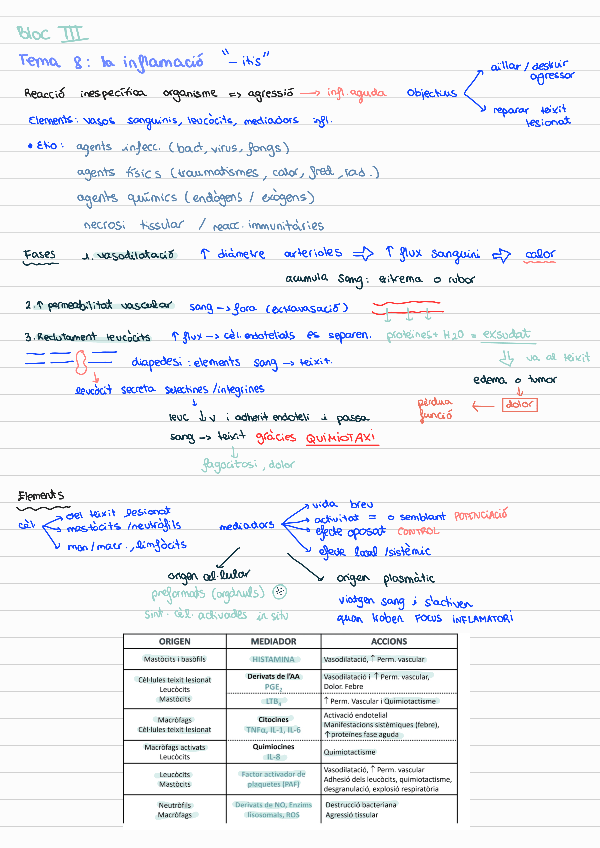 Bloc III
Tema 8: la inflamació "-itis"
Reacció inespecífica organisme => agressió → infl. aguda Objectius
aïllar / destruir agressor
reparar teixit lesionat
Elements: vasos sanguinis, leucòcits, mediadors infl.
• Etio: agents infecc. (bact, virus, fongs)
agents físics (traumatismes, calor, fred, rad.)
agents químics (endògens / exògens)
necrosi tissular / reacc. immunitàries
Fases 1. vasodilatació ↑ diàmetre arterioles ⇒ ↑ flux sanguini ⇒ calor
acumula sang: eritema o rubor
2. ↑ permeabilitat vascular sang → fora (extravasació)
3. Reclutament leucòcits ↑ flux → cèl. endotelials es separen. proteïnes + H2O = exsudat
va al teixit
diapedesi: elements sang → teixit.
edema o tumor
leucòcit secreta selectines / integrines
dolor → pèrdua funció
leuc ↓ v i adherit endoteli i passa
sang → teixit gràcies QUIMIOTAXI
fagocitosi, dolor
Elements
cèl.
del teixit lesionat
mastòcits / neutròfils
mon/macr., limfòcits
mediadors
vida breu
activitat = o semblant POTENCIACIÓ
efecte oposat CONTROL
efecte local / sistèmic
origen cel·lular
preformats (orgànuls)
sint. cèl. activades in situ
origen plasmàtic
viatgen sang i s'activen
quan troben FOCUS INFLAMATORI
ORIGEN MEDIADOR ACCIONS
Mastòcits i basòfils HISTAMINA Vasodilatació, ↑ Perm. vascular
Cèl·lules teixit lesionat
Leucòcits
Mastòcits
Derivats de l'AA
PGE2
Vasodilatació i ↑ Perm. vascular,
Dolor. Febre
LTB4 ↑ Perm. Vascular i Quimiotactisme
Macròfags
Cèl·lules teixit lesionat
Citocines
TNFα, IL-1, IL-6
Activació endotelial
Manifestacions sistèmiques (febre),
↑proteïnes fase aguda
Macròfags activats
Leucòcits
Quimiocines
IL-8
Quimiotactisme
Leucòcits
Mastòcits
Factor activador de
plaquetes (PAF)
Vasodilatació, ↑ Perm. vascular
Adhesió dels leucòcits, quimiotactisme,
desgranulació, explosió respiratòria
Neutròfils
Macròfags
Derivats de NO, Enzims
lisosomals, ROS
Destrucció bacteriana
Agressió tissular